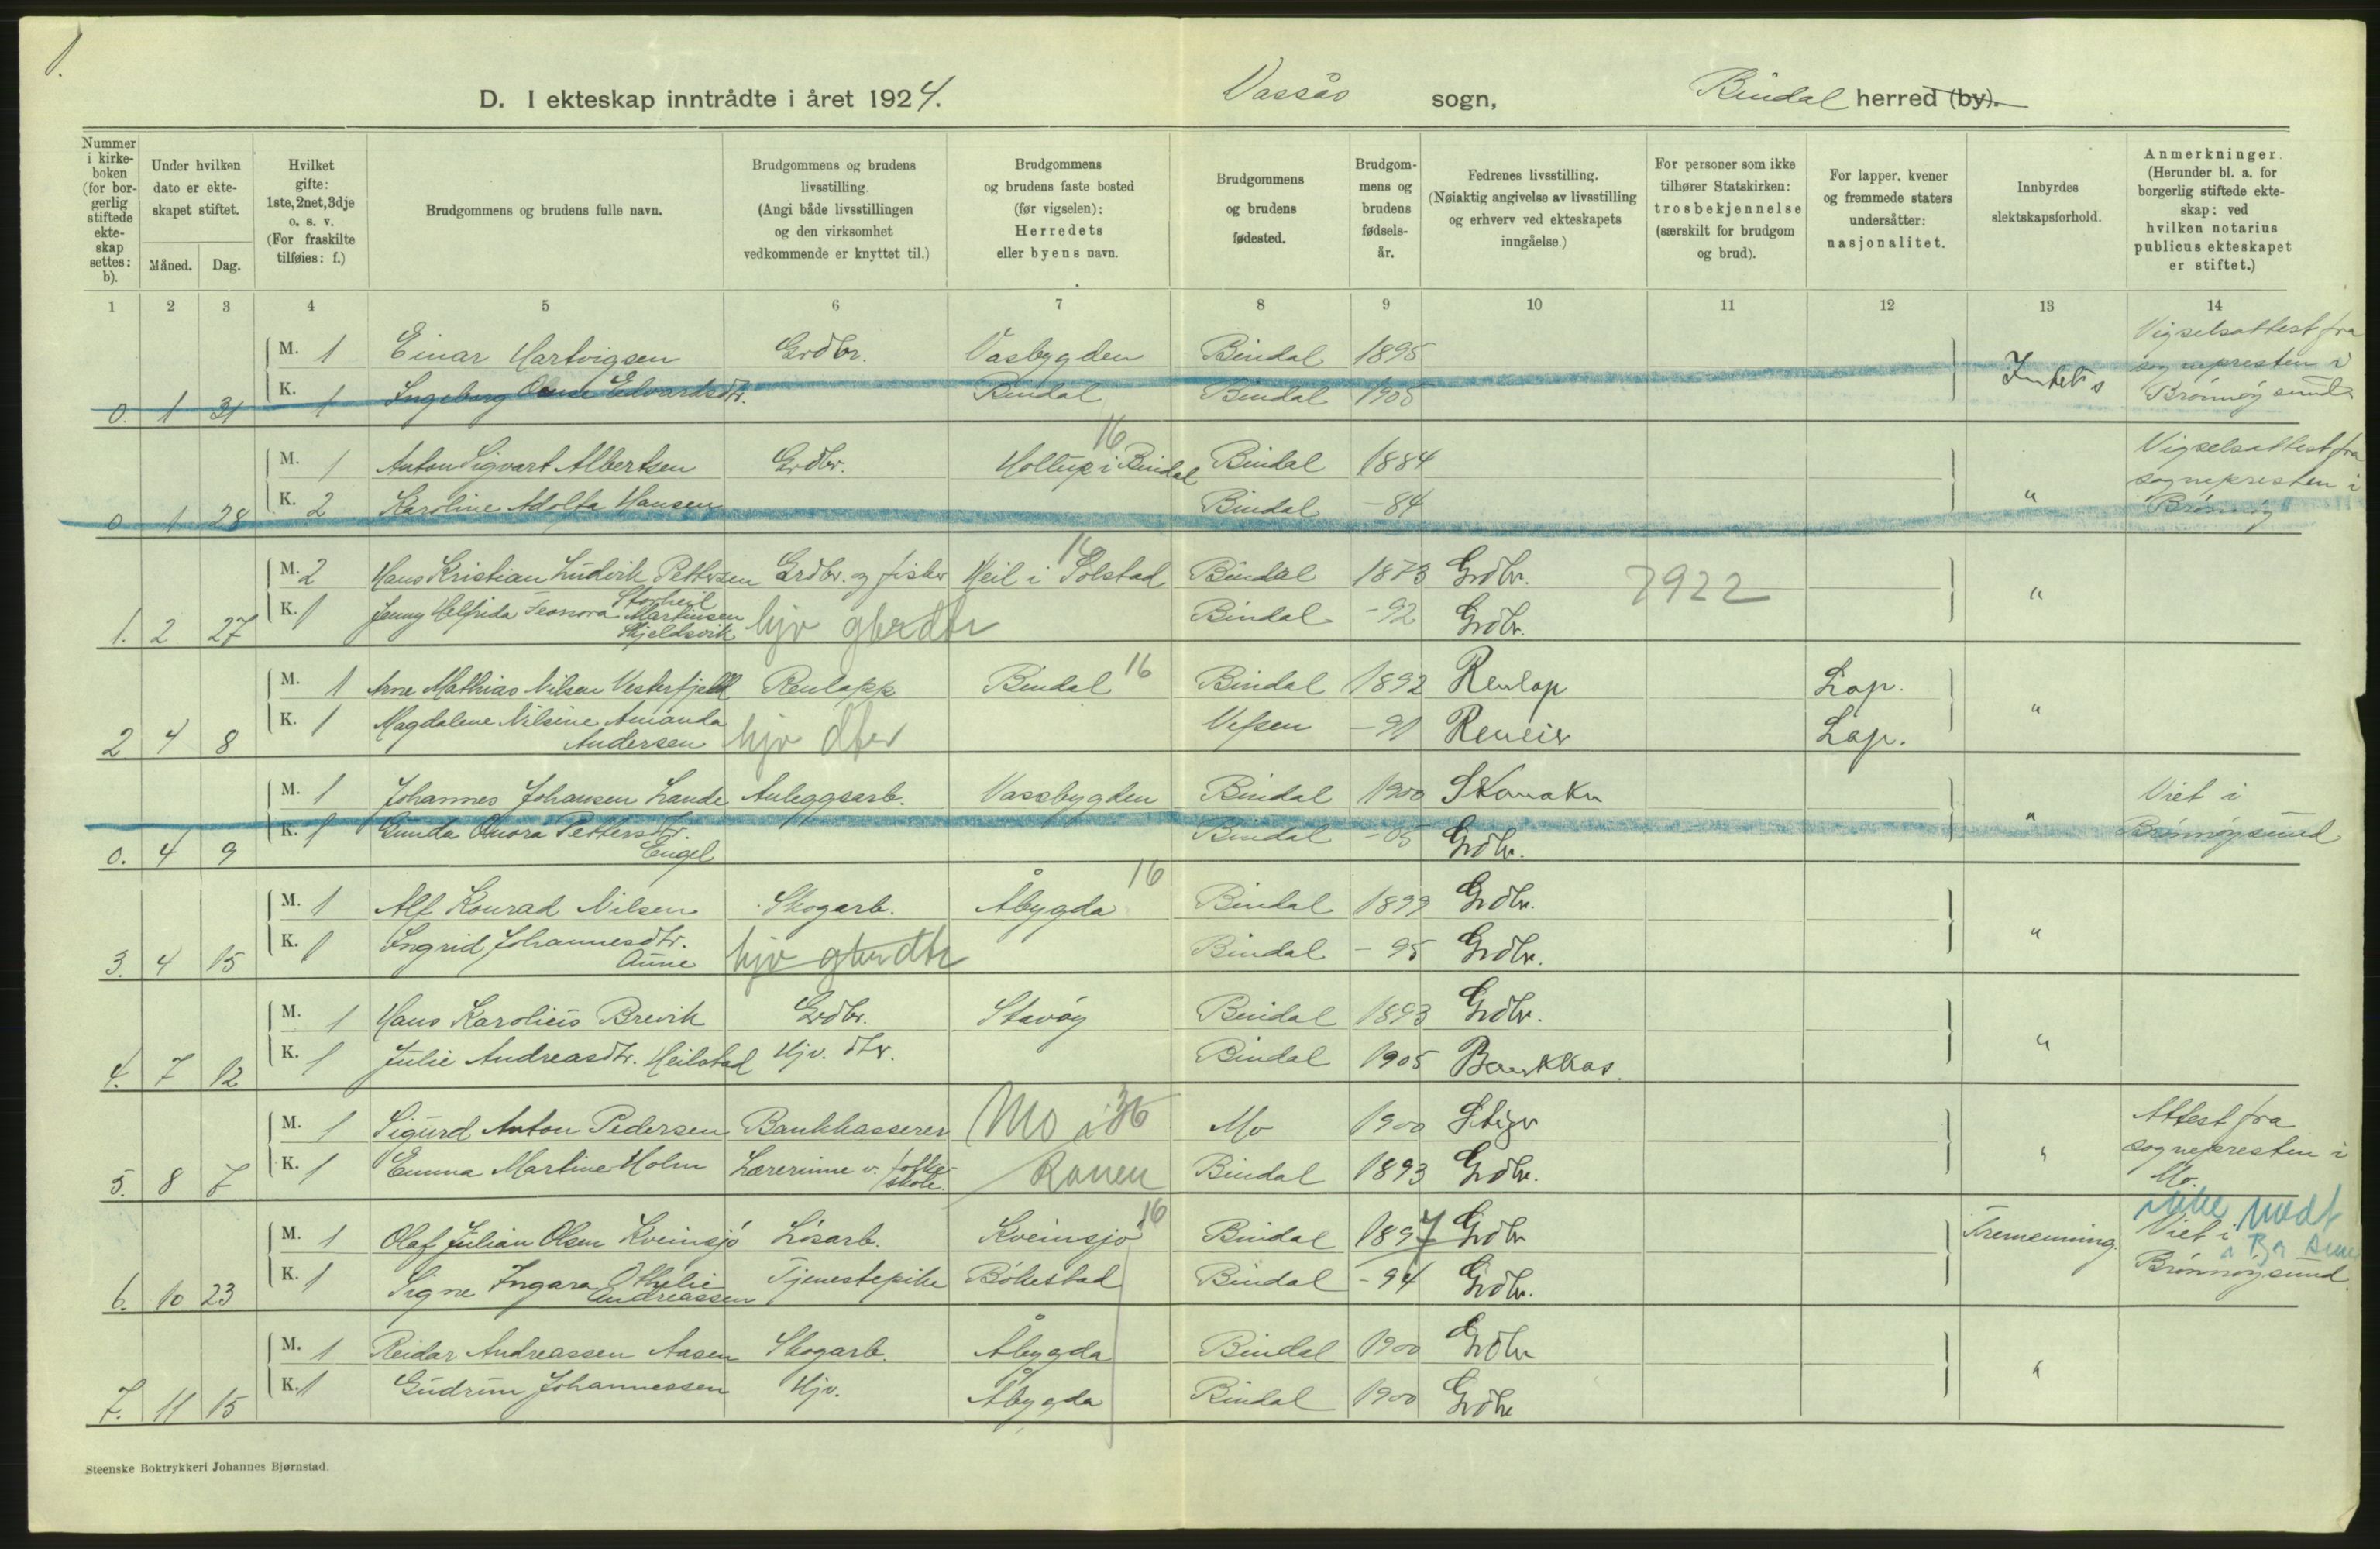 1.
D. I ekteskap inntrådte i året 1924. Vassås sogn, Bindal herred (by).
Nummer i kirkeboken (for borgerlig stiftede ekteskap settes: b).
Under hvilken dato er ekteskapet stiftet.
Måned. Dag.
Hvilket gifte: 1ste, 2net, 3dje o. s. v. (For fraskilte tilføies: f.)
Brudgommens og brudens fulle navn.
Brudgommens og brudens livsstilling. (Angi både livsstillingen og den virksomhet vedkommende er knyttet til.)
Brudgommens og brudens faste bosted (før vigselen): Herredets eller byens navn.
Brudgommens og brudens fødested.
Brudgommens og brudens fødselsår.
Fedrenes livsstilling. (Nøiaktig angivelse av livsstilling og erhverv ved ekteskapets inngåelse.)
For personer som ikke tilhører Statskirken: trosbekjennelse (særskilt for brudgom og brud).
For lapper, kvener og fremmede staters undersåtter: nasjonalitet.
Innbyrdes slektskapsforhold.
Anmerkninger. (Herunder bl. a. for borgerlig stiftede ekteskap: ved hvilken notarius publicus ekteskapet er stiftet.)
1 2 3 4 5 6 7 8 9 10 11 12 13 14
M. 1 Einar Hartvigsen Grdbr. Vasbygden Bindal 1895 Vigselsattest fra
sognepresten i
0. 1 31 K. 1 Ingeborg Edvardsdtr. Bindal Bindal 1905 Intets Brønnøysund
M. 1 Anton Sigvart Albertsen Grdbr. Holtup i Bindal 16 Bindal 1884 Vigselsattest fra
sognepresten i
0 1 28 K. 2 Karoline Adolfa Hansen Bindal -84 " Brønnøy
M. 2 Hans Kristian Ludvik Pettersen Grdbr. og fisker Heil i Solstad 16 Bindal 1873 Grdbr. 7922 "
Storheil
1. 2 27 K. 1 Jenny Helfrida Leonora Martinsen hjv gbrdtr Bindal -92 Grdbr.
Skjeldsvik
M. 1 Arne Mathias Nilsen Vesterfjeld Renlapp Bindal 16 Bindal 1892 Renlap Lap.
2 4 8 K. 1 Magdalene Nilsine Amanda hjv dtr Vefsen -91 Reneier Lap. "
Andersen
M. 1 Johannes Johansen Lande Anleggsarb. Vassbygden Bindal 1900 Skomaker Viet i
0. 4 9 K. 1 Gunda Petters dtr. Bindal -05 Grdbr. " Brønnøysund
Engel
M. 1 Alf Konrad Nilsen Skogarb. Åbygda 16 Bindal 1899 Grdbr.
3. 4 15 K. 1 Ingrid Johannesdtr. hjv gbrdtr Bindal - 95 Grdbr. "
Aune
M. 1 Hans Karolius Brevik Grdbr. Stavøy Bindal 1893 Grdbr.
4. 7 12 K. 1 Julie Andreasdtr. Heilstad Hjv. dtr. Bindal 1905 Bankkas. "
M. 1 Sigurd Anton Pedersen Bankkasserer Mo i 36 Mo 1900 Stiger Attest fra
sognepresten i
5. 8 7 K. 1 Emma Martine Holm Lærerinne v. folkeskole. Ranen Bindal 1893 Grdbr. " Mo.
ikke medt
M. 1 Olaf Julian Olsen Kveinsjø Løsarb. Kveinsjø 16 Bindal 1897 Grdbr Tremenning. Viet i
6. 10 23 K. 1 Signe Ingara Othelie Andreassen Tjenestepike Bøkestad Bindal - 94 Grdbr. Brønnøysund.
M. 1 Reidar Andreassen Aasen Skogarb. Åbygda Bindal 1900 Grdbr
7. 11 15 K. 1 Gudrun Johannessen Hjv. Åbygda Bindal 1900 Grdbr "
Steenske Boktrykkeri Johannes Bjørnstad.